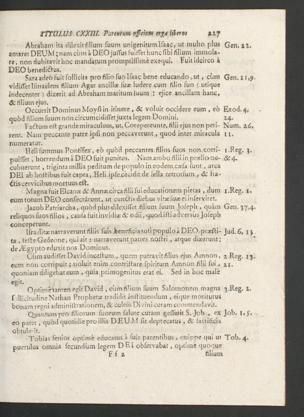 TITULUS CXXIII. Parentum officium erga liberos 227
Abraham ita dilexit filium suum unigenitum Isaac, ut multo plus Gen. 22.
amaret DEUM; nam cùm à DEO jussus fuisset hunc sibi filium immola-
re, non dubitavit hoc mandatum promptissimè exequi. Fuit ideirco à
DEO benedictus.
Sara adeò fuit sollicita pro filio suo Isaac bene educando, ut, cùm Gen. 21,9.
vidisset Ismaelem filium Agar ancillæ suæ ludere cum filio suo utique
indecenter: dixerit ad Abraham maritum suum: ejice ancillam hanc,
& filium ejus.
Occurrit Dominus Moysi in itinere, & voluit occidere eum, eò Exod. 4.
quòd filium suum non circumcidisset juxta legem Domini. 24.
Factum est grande miraculum, ut, Core pereunte, filii ejus non peri- Num. 26.
rent. Nam peccante patre ipsi non peccaverunt, quod inter miracula 11.
numeratur.
Heli summus Pontifex, eò quòd peccantes filios suos non corri- 1. Reg. 3.
puisset, horrendum à DEO fuit punitus. Nam ambo filii in prælio oc- & 4.
cubuerunt, triginta millia peditum de populo in eodem cæsa sunt, arca
DEI ab hostibus fuit capta, Heli ipse cecidit de sella retrorsum, & fra-
ctis cervicibus mortuus est.
Magna fuit Elcanæ & Annæ circa filii sui educationem pietas, dum 1. Reg. 1.
eum totum DEO consecrârunt, ut cunctis diebus vitæ suæ ei inserviret.
Jacob Patriarcha, quòd plus dilexisset filium suum Joseph, quàm Gen. 37.4.
reliquos suos filios, causa fuit invidiæ & odii, quod isti adversùs Joseph
conceperunt.
Israelitæ narraverunt filiis suis beneficia toti populo à DEO præsti- Jud. 6, 13.
ta, teste Gedeone, qui ait: narraverunt patres nostri, atque dixerunt;
de Ægypto eduxit nos Dominus.
Cùm audisset David incestum, quem patraverit filius ejus Amnon, 2. Reg. 13.
eum non corripuit; noluit enim contristare spiritum Amnon filii sui 21.
quoniam diligebat eum, quia primogenitus erat ei. Sed in hoc malè
egit.
Optimè tamen egit David, cùm filium suum Salomonem magna 3. Reg. 2.
sollicitudine Nathan Prophetæ tradidit instituendum, eique moriturus
bonam regni administrationem, & cultûs Divini curam commendavit.
Quantam pro filiorum suorum salute curam gesserit S. Job, ex Job. 1. 5.
eo patet, quòd quotidie pro illis DEUM sit deprecatus, & sacrificia
obtulerit.
Tobias senior optimè educavit à suis parentibus, exinde quòd ut Tob. 4.
puerulus omnia secundùm legem DEI observabat, optimè quoque
F f 2 filium